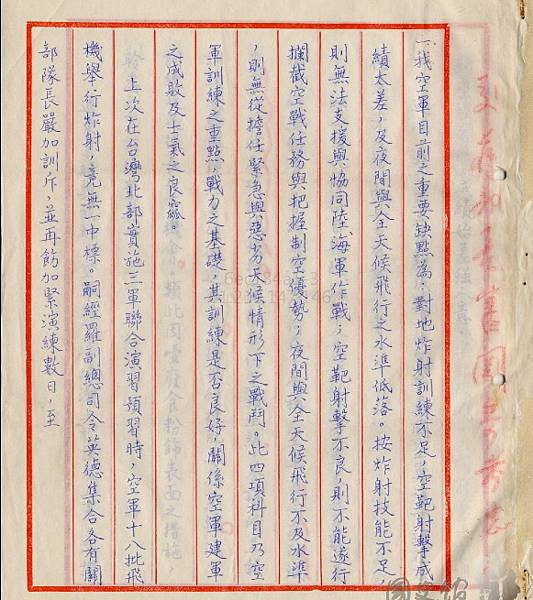 一、我空軍目前之重要缺點為：對地炸射訓練不足，空靶射擊成
績太差，及夜間與全天候飛行之水準低落。按炸射技能不足，
則無法支援與協同陸海軍作戰；空靶射擊不良，則不能遂行
攔截空戰任務與把握制空優勢；夜間與全天候飛行不及水準
，則無從擔任緊急與惡劣天候情形下之戰鬥。此四項科目乃空
軍訓練之重點，戰力之基礎，其訓練是否良好，關係空軍建軍
之成敗及士氣之良窳。
上次在台灣北部實施三軍聯合演習預習時，空軍十八批飛
機舉行炸射，竟無一中標。嗣經羅副總司令英德集合各有關
部隊長嚴加訓斥，並再飭加緊演練數日，至